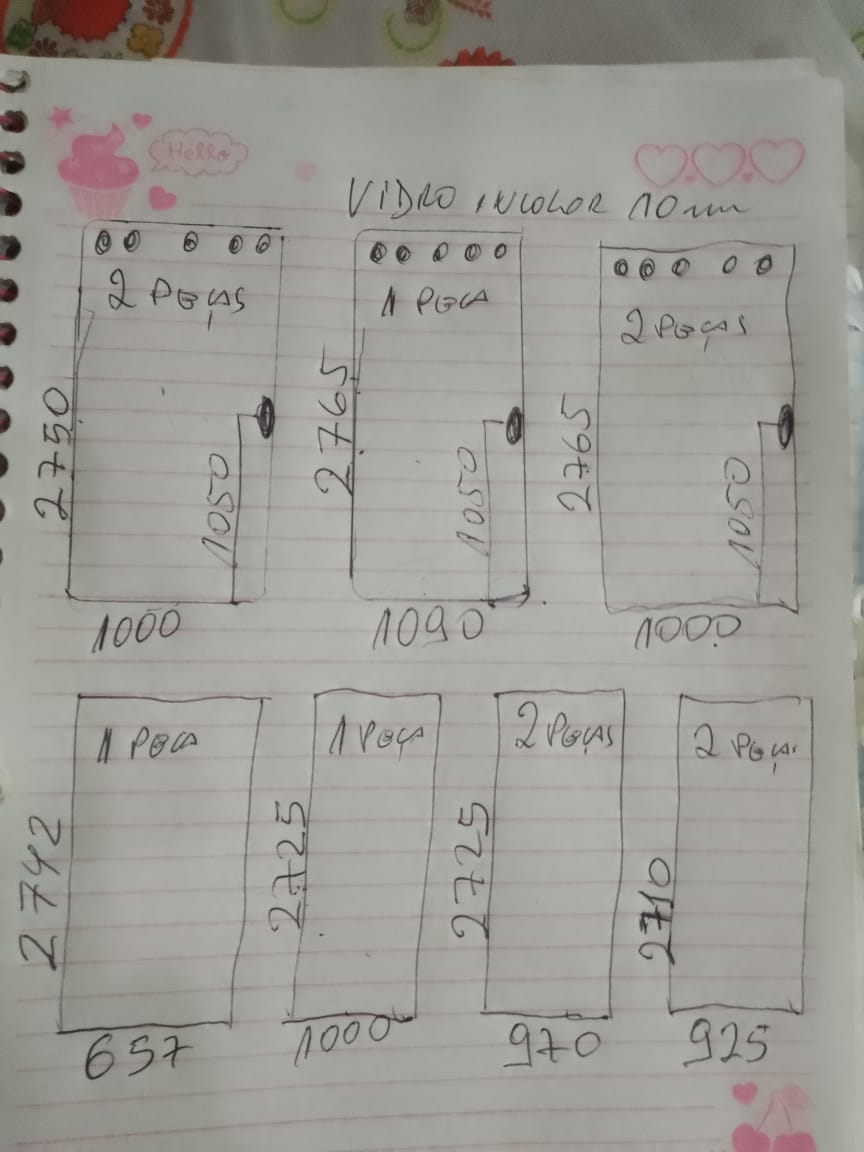 Hello
VIDRO INCOLOR 10mm
2 PEÇAS
2750
1050
1000
1 PEÇA
2765
1050
1090
2 PEÇAS
2765
1050
1000
1 PEÇA
2742
657
1 PEÇA
2725
1000
2 PEÇAS
2725
970
2 PEÇA
2710
925